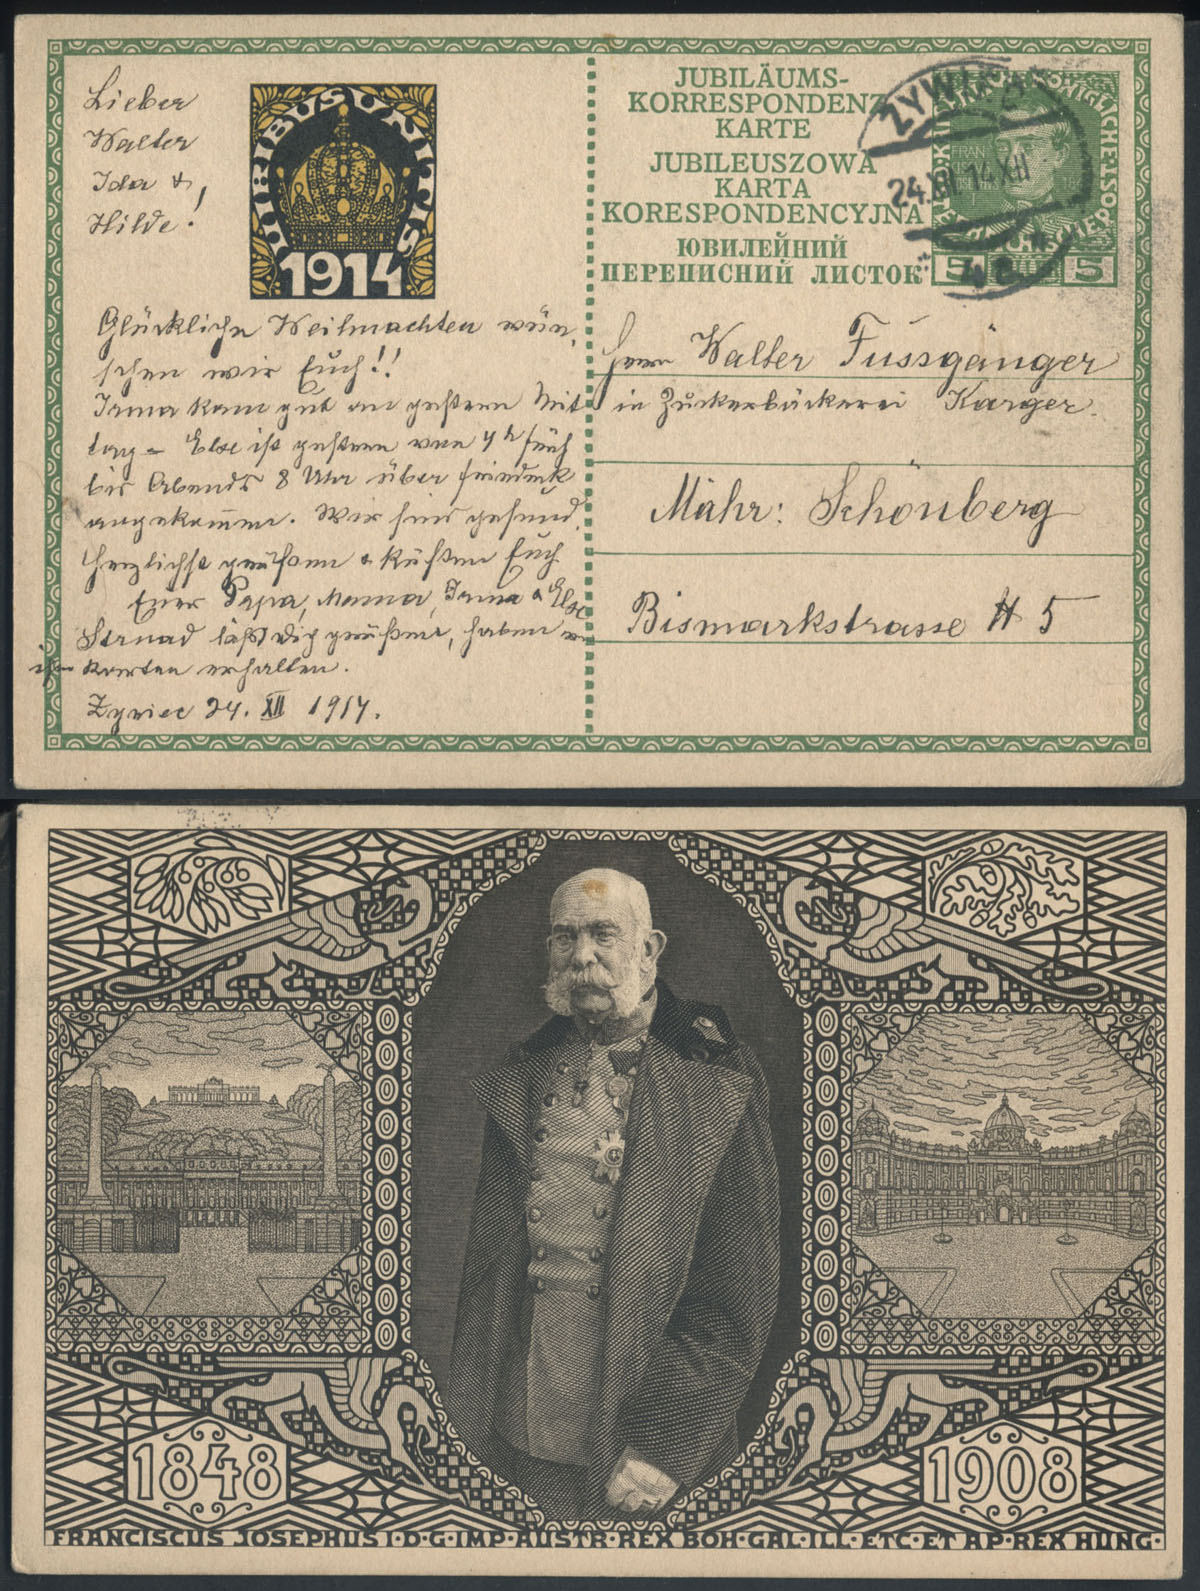 Lieber
Walter
Ida &
Hilde!
VIRIBUS UNITIS
1914
Glückliche Weihnachten wün,
schen wir Euch!!
Irma kam gut an gestern Mit
tag - Else ist gestern von 4h früh
bis Abends 8 Uhr über Friedek
angekommen. Wir sind gesund.
Herzlichst grüssen & küssen Euch
Euer Papa, Mama, Irma & Else
Strnad läßt Dich grüßen, haben
Karten erhalten.
Zywiec 24. XII 1914.
JUBILÄUMS-
KORRESPONDENZ
KARTE
JUBILEUSZOWA
KARTA
KORESPONDENCYJNA
ЮВИЛЕЙНИЙ
ПЕРЕПИСНИЙ ЛИСТОК
ZYWIEC
24.XII 14 XII
4e
5 5
Herrn Walter Fussgänger
in Zuckerbäckerei Karger.
Mähr: Schönberg
Bismarkstrasse # 5
1848
1908
FRANCISCUS JOSEPHUS I·D·G·IMP·AUSTR·REX BOH·GAL·ILL·ETC·ET AP·REX HUNG·